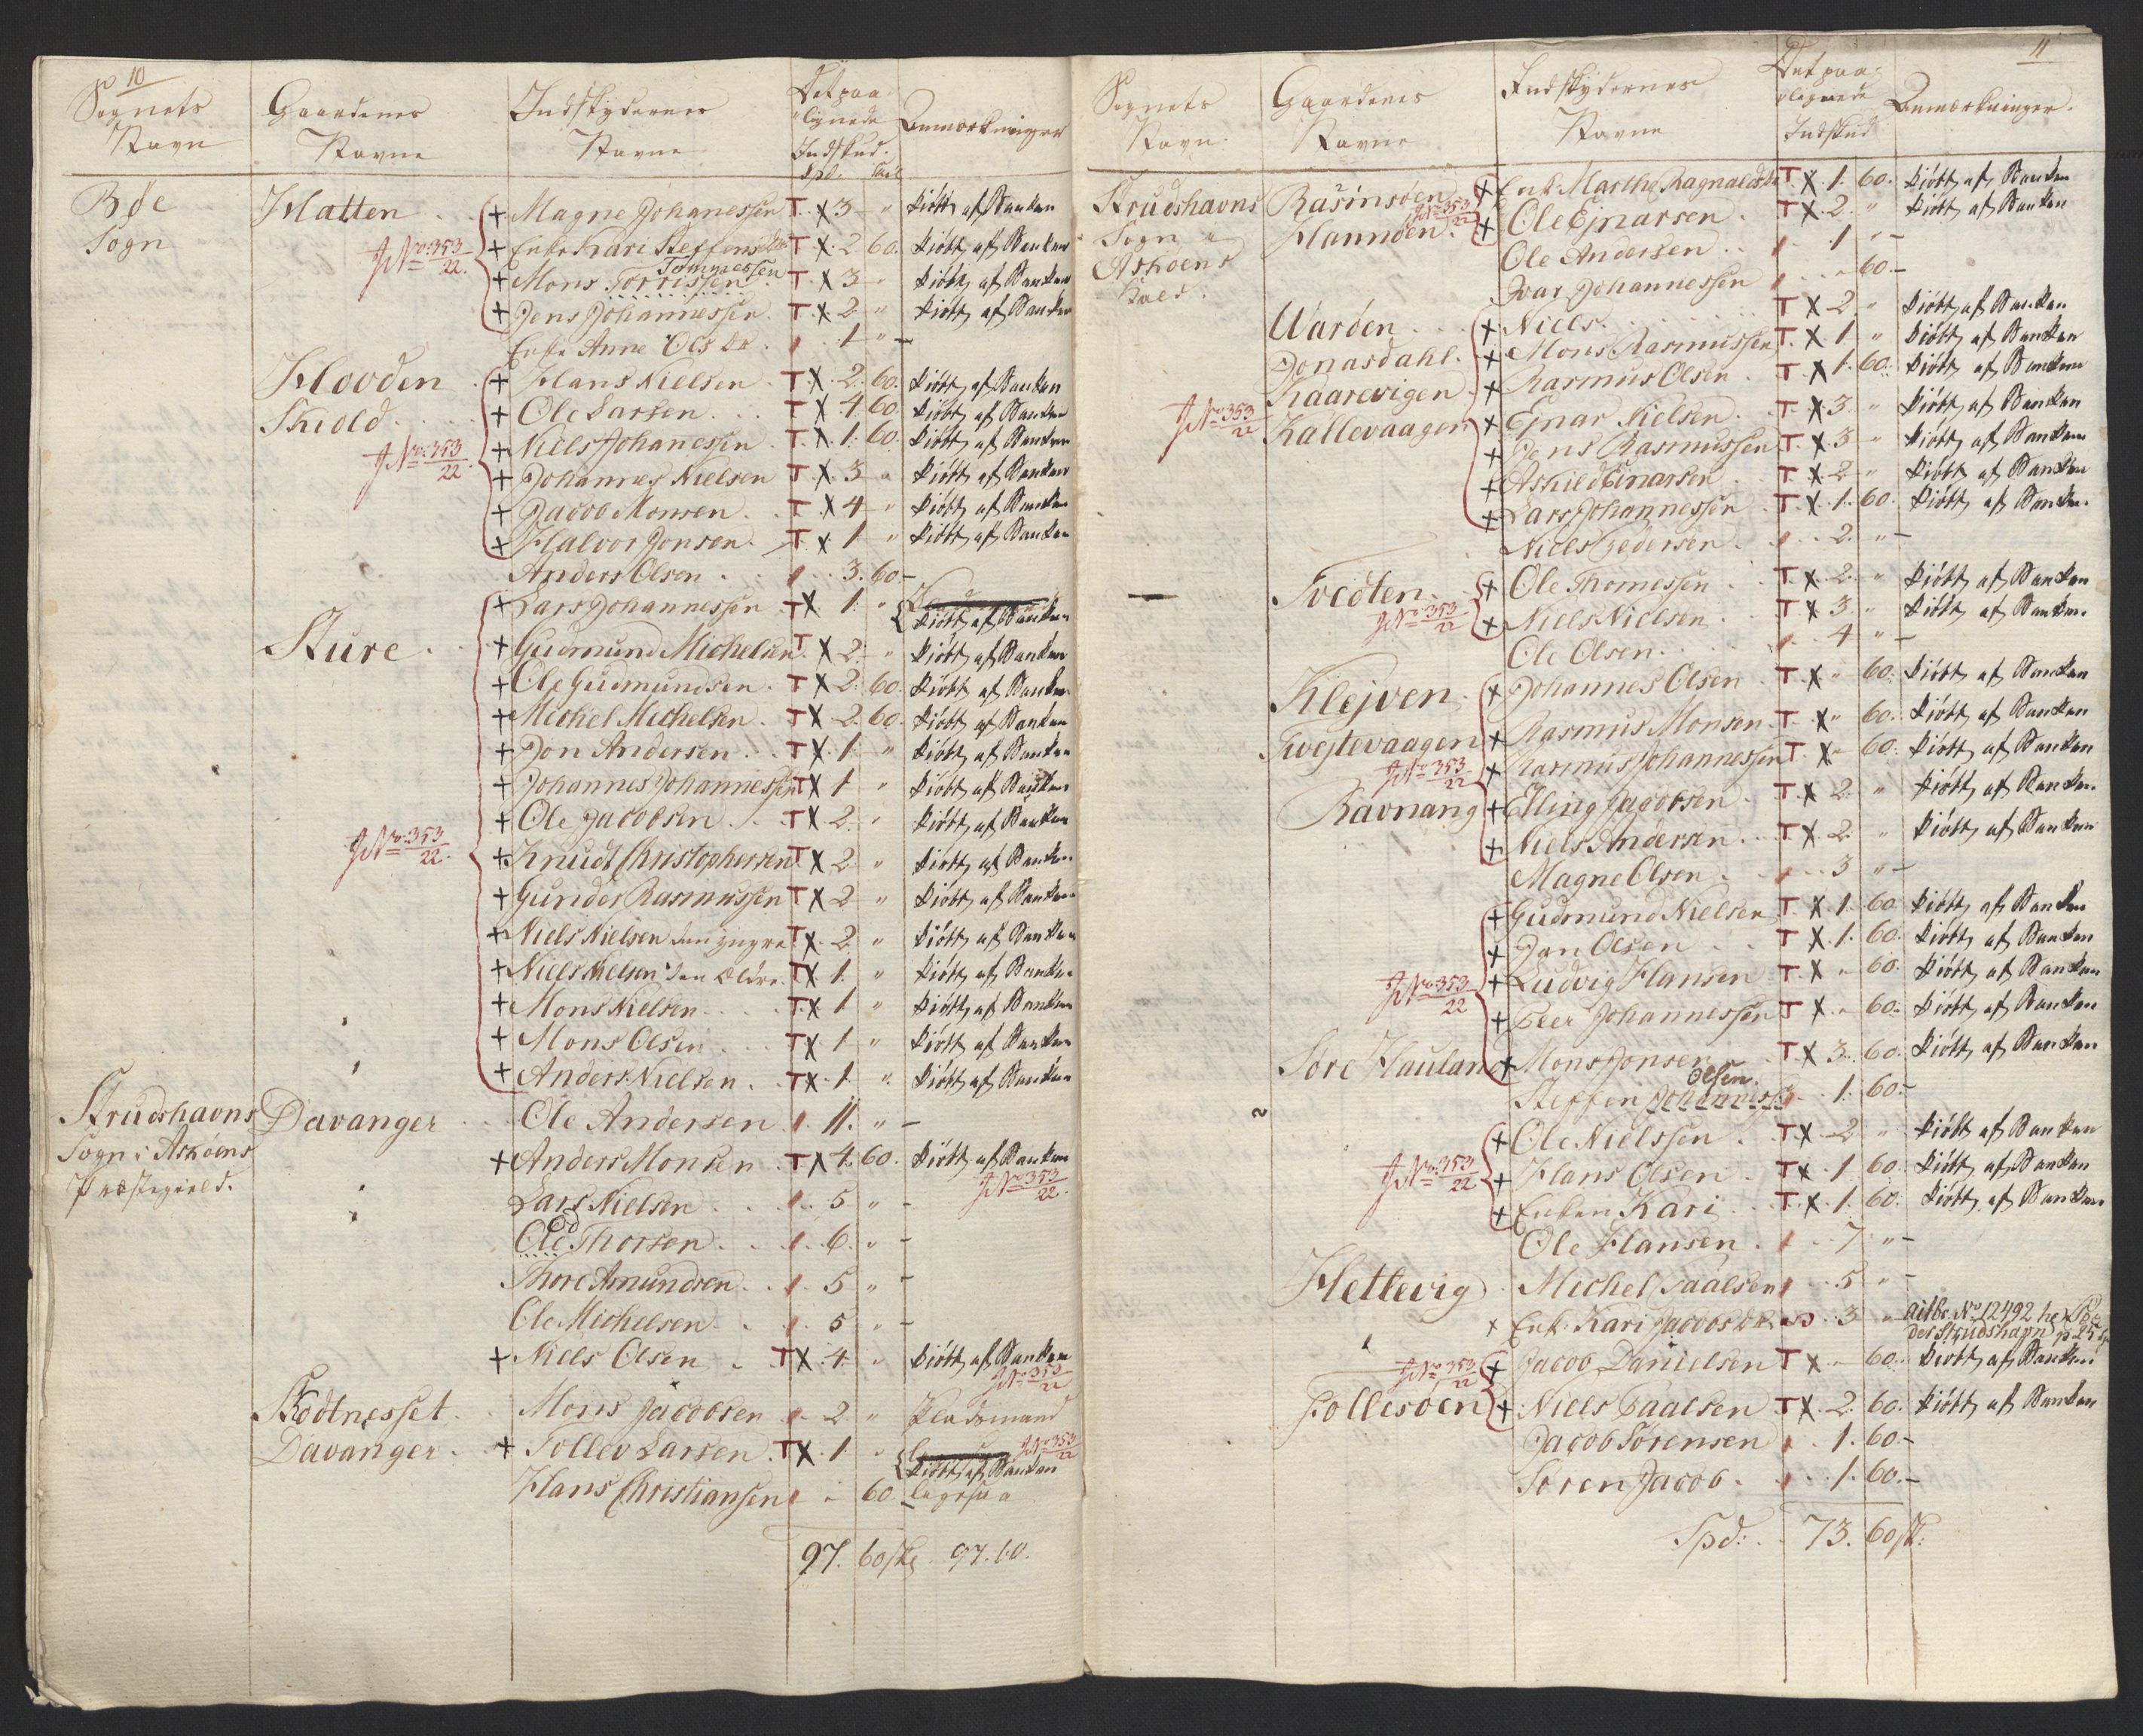 10
Sognets Navn
Gaardenes Navne
Indskydernes Navne
Det paalignede Indskud. Spd. Skil
Anmærkninger
Bøe Sogn
Hatten . . + Magne Johanessen T. x 3 " Kiøbt af Banken
JNo: 353/22. + Enke Kari Steffens Dr T x 2 60. Kiøbt af Banken
Tommessen
+ Mons Torrissen T x 3 " Kiøbt af Banken
+ Jens Johannessen. T. x 2 " Kiøbt af Banken
Enke Anne Ols Dr. 1 " –
Hovden . + Hans Nielsen . T. x. 2. 60. Kiøbt af Banken
Skiold. . . . + Ole Larsen. . . T x 4 60 Kiøbt af Banken
JNo: 353/22. + Niels Johanessen T. x. 1. 60. Kiøbt af Banken
+ Johannes Nielsen T x. 3 " Kiøbt af Banken
+ Jacob Monsen. . T. x 4 " Kiøbt af Banken
+ Halvor Jonsen. T x 1 " Kiøbt af Banken
Anders Olsen . . . 3. 60 –
+ Lars Johannessen T x 1. " Kiøbt af Banken
Sture . . + Gudmund Michelsen T. x 2 " Kiøbt af Banken
+ Ole Gudmundsen. T x 2. 60. Kiøbt af Banken
+ Michel Michelsen. T x 2. 60. Kiøbt af Banken
+ Jon Andersen . . T x. 1. " Kiøbt af Banken
+ Johannes Johannessen T x 1 " Kiøbt af Banken
+ Ole Jacobsen . . T x 2. " Kiøbt af Banken
JNo: 353/22. + Knudt Christophersen T x 2 " Kiøbt af Banken
+ Gunder Rasmussen T x 2 " Kiøbt af Banken
+ Niels Nielsen den yngre T x. 2 " Kiøbt af Banken
+ Niels Nielsen den ældre. T x 1. " Kiøbt af Banken
+ Mons Nielsen . . . . T. x 1 " Kiøbt af Banken
+ Mons Olsen . . . T x 1 " Kiøbt af Banken
+ Anders Nielsen . . T x. 1. " Kiøbt af Banken
Strudshavns Sogn i Askøens Præstegield.
Davanger . . . Ole Andersen . 11. " –
+ Anders Monsen . T x 4. 60. Kiøbt af Banken
JNo: 353/22.
Lars Nielsen . . . . 5 " –
Od
Ole Thorsen. . . . 6. " –
Thore Amundsen . . . 5 " –
Ole Michelsen . . . 5 " –
+ Niels Olsen . . T x. 4. " Kiøbt af Banken
JNo 353/22
Skodtnesset . . Mons Jacobsen . . 2 " Pladsmand
Davanger . . + Tollev Larsen. T x. 1 " Kiøbt af Banken
JNo 353/22
Hans Christiansen . " 60 – ligesaa
97. 60 sk 97.60.
11
Sognets Navn.
Gaardenes Navne
Indskydernes Navne
Det paalignede Indskud
Anmærkninger.
Strudshavns Sogn i Askøens Gield.
Ramsøen + Enk. Marthe Ragnalds Dr T. x. 1. 60. Kiøbt af Banken
JNo: 353/22
Hannøen. + Ole Ejnarsen . T x. 2. " Kiøbt af Banken
Ole Andersen . . . 1 " –
Ivar Johannessen . . " 60. –
Uarden . . . + Niels. . . . . . T x 2. " Kiøbt af Banken
Jonasdahl. + Mons Rasmussen T. x 1 " Kiøbt af Banken
Kaarevigen . + Rasmus Olsen . T x 1. 60. Kiøbt af Banken
JNo 353/22 Kallevaagen + Ejnar Nielsen . T. x 3. " Kiøbt af Banken
+ Jens Rasmussen T. x. 3 " Kiøbt af Banken
+ Askield Einarsen . T x 2 " Kiøbt af Banken
+ Lars Johannessen . T. x. 1. 60. Kiøbt af Banken.
Niels Pedersen . . . 2. " –
Tvedten. . + Ole Thomessen . T x. 2. " Kiøbt af Banken
JNo: 353/22 + Niels Nielsen. . T x 3 " Kiøbt af Banken.
Ole Olsen. . . . . 4 " –
Klejven . + Johannes Olsen . T. x " 60. Kiøbt af Banken
Tvejtevaagen + Rasmus Monsen . T. x " 60. Kiøbt af Banken
JNo 353/22 + Rasmus Johannessen T. x " 60. Kiøbt af Banken
Ravnang + Elling Jacobsen . T. x 2. " Kiøbt af Banken.
+ Niels Andersen. . . T x 2. " Kiøbt af Banken
Magne Olsen. . . 3 " –
+ Gudmund Nielsen T. x 1. 60. Kiøbt af Banken
+ Jan Olsen . . T x. 1. 60. Kiøbt af Banken
JNo: 353/22 + Ludvig Hansen . T x " 60. Kiøbt af Banken
+ Peer Johannessen T x " 60. Kiøbt af Banken
Søre Hauland + Mons Jonsen . T x 3. 60. Kiøbt af Banken
Olsen.
Steffen Johannesse . . 1. 60. –
+ Ole Nielssen . . T x. 2 " Kiøbt af Banken
JNo: 353/22 + Hans Olsen . . T x. 1 60. Kiøbt af Banken
+ Enken Kari . . . T. x. 1. 60. Kiøbt af Banken
Ole Hansen . . . 7 " –
Hettevig . Michel Paalsen . . . 5 " –
x Enk. Kari Jacobs Dr . 3 "
No 12492
Strudshavn
JNo 353/22 + Jacob Danielsen T x " 60. Kiøbt af Banken
Follesøen + Niels Paalsen T x. 2. 60. Kiøbt af Banken
Jacob Sørensen . . 1. 60. –
Søren Jacob . . . . 1. 60. –
Spd: . . 73. 60 sk: